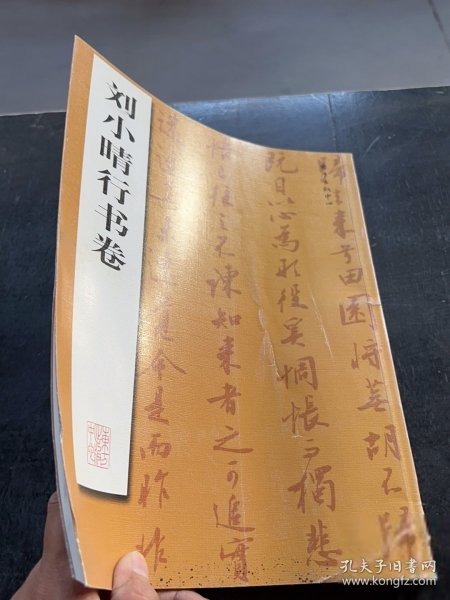 刘小晴行书卷
歸去来兮田園将芜胡不歸
既自以心為形役奚惆悵而獨悲
悟已往之不諫知来者之可追實
迷途其未遠覺今是而昨非
孔夫子旧书网
www.kongfz.com